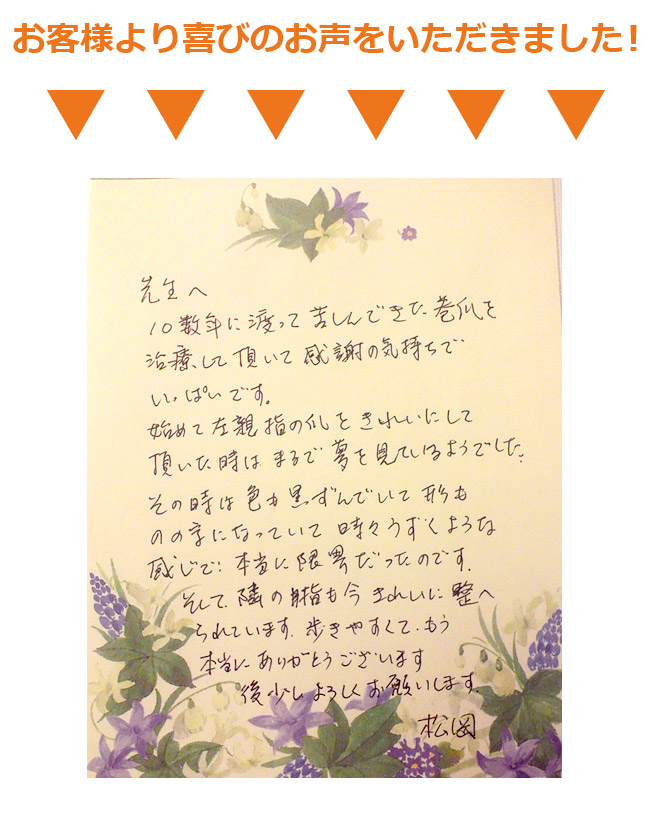 お客様より喜びのお声をいただきました!
先生へ
10数年に渡って苦しんできた巻爪を
治療して頂いて感謝の気持ちで
いっぱいです。
始めて左親指の爪をきれいにして
頂いた時はまるで夢を見ているようでした。
その時は色も黒ずんでいて形も
のの字になっていて時々うずくような
感じで、本当に限界だったのです。
そして、隣の指も今きれいに整へ
られています。歩きやすくて、もう
本当にありがとうございます
後少しよろしくお願いします。
松岡